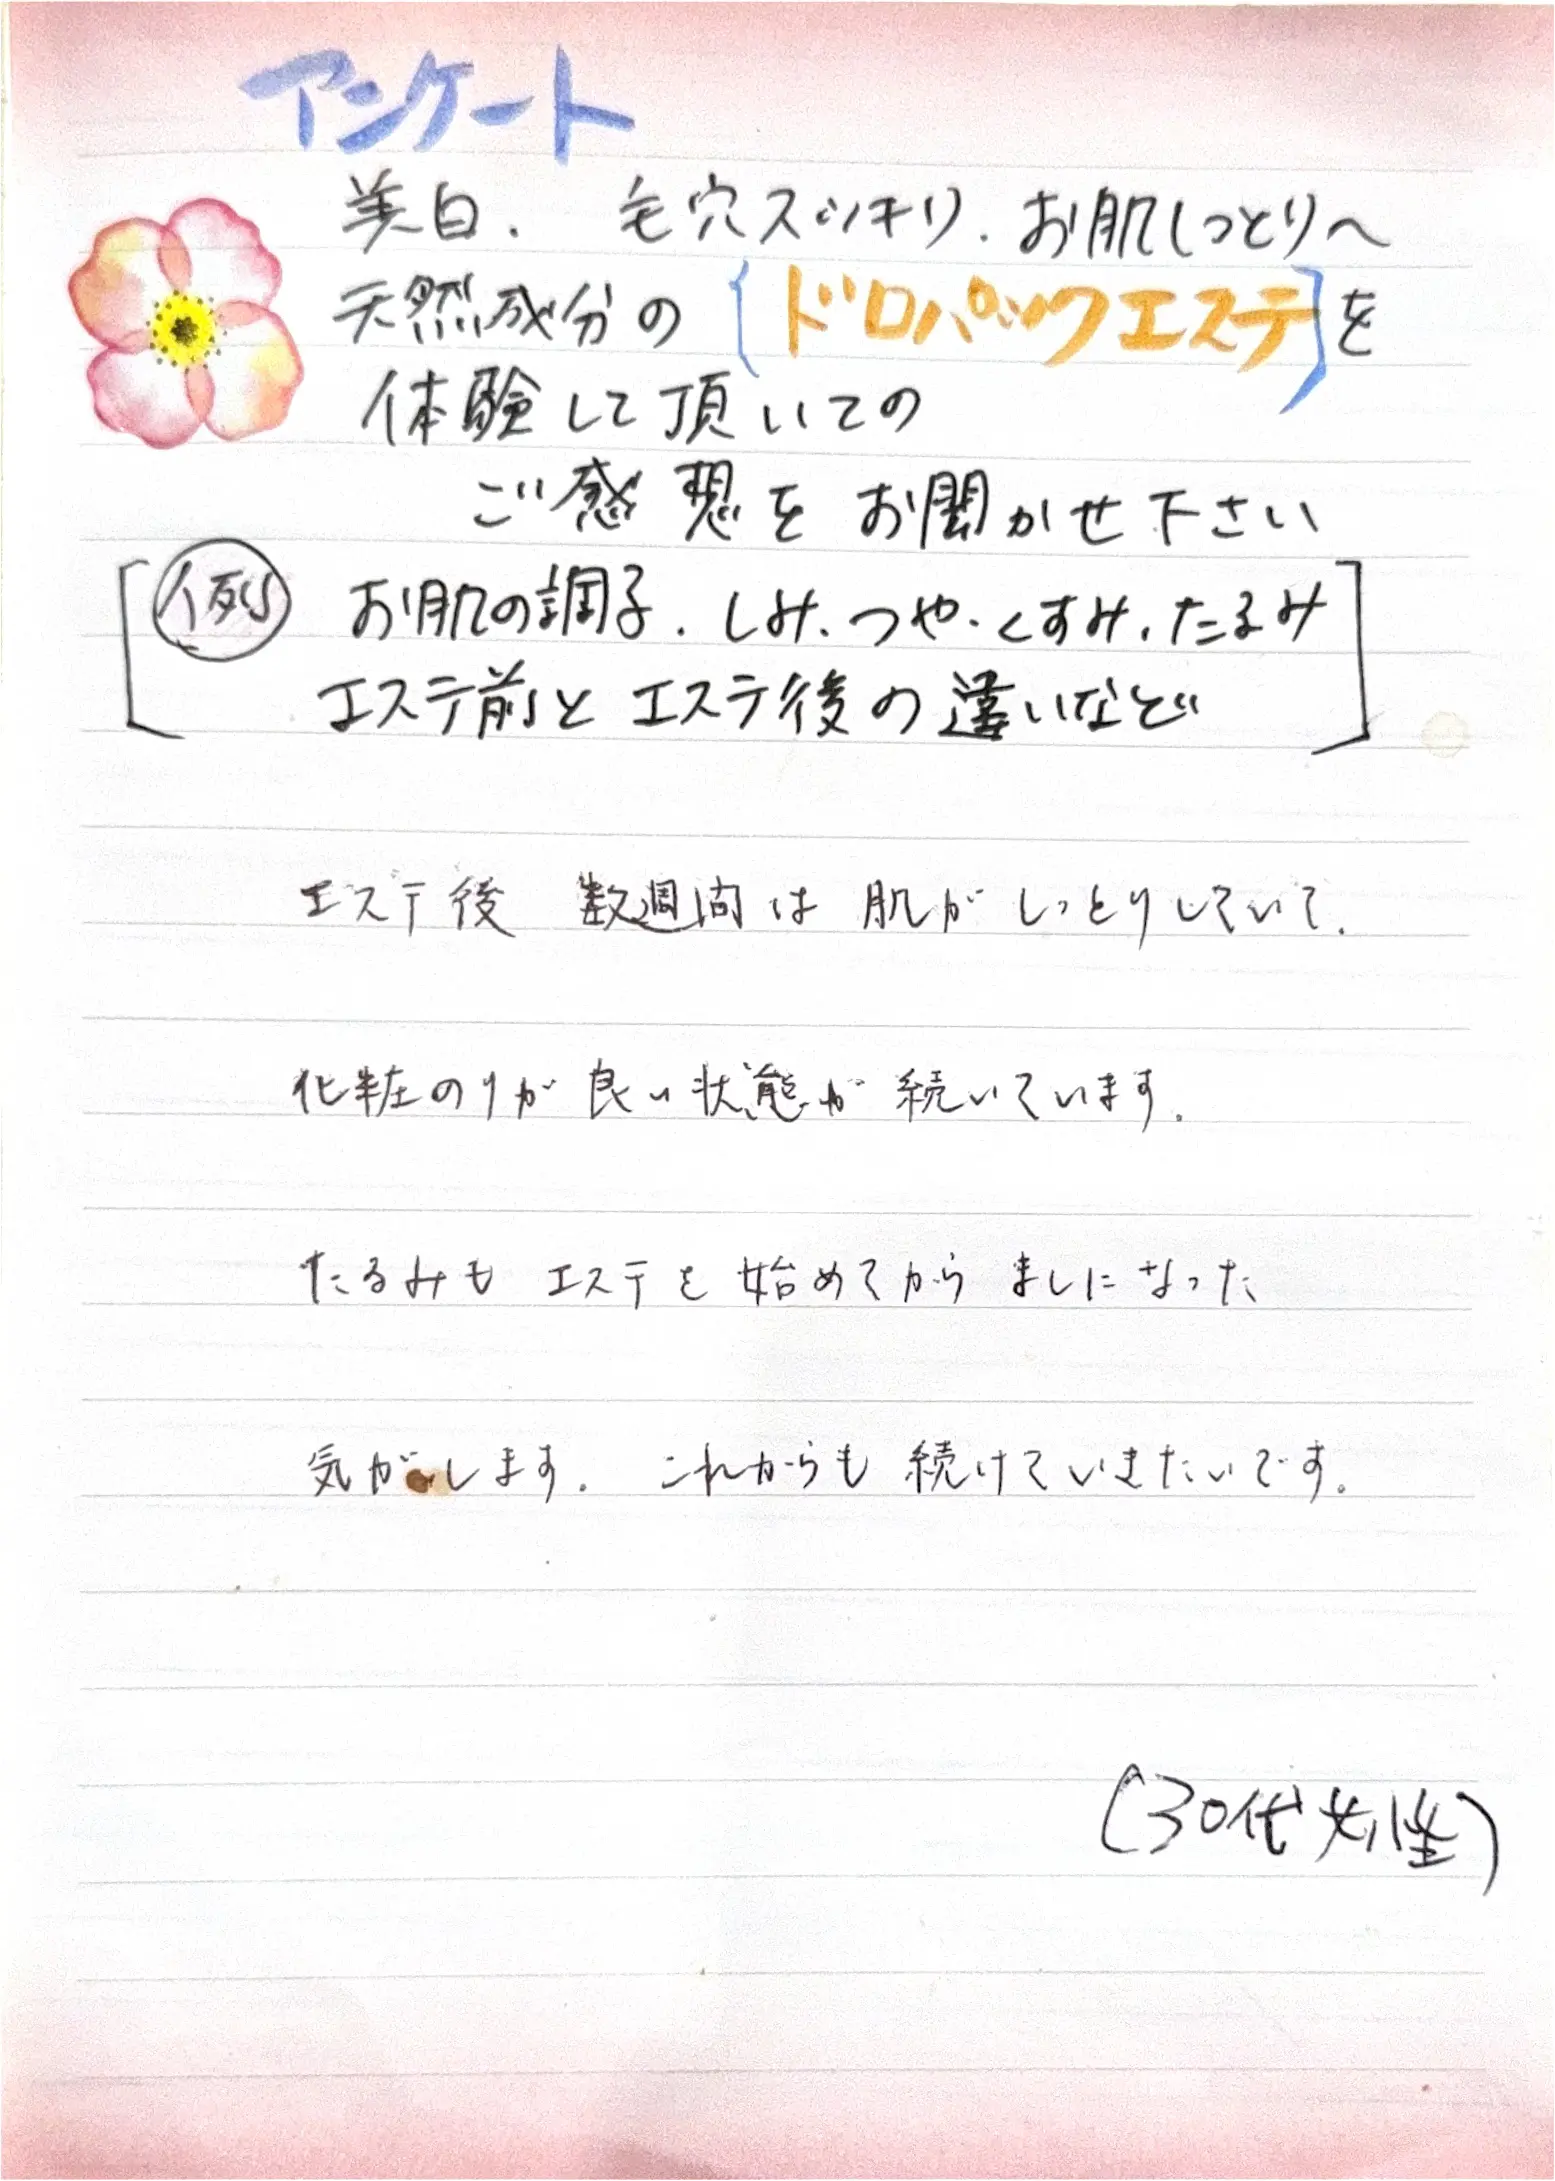 アンケート
美白、毛穴スッキリ、お肌しっとりへ
天然成分の「ドロパックエステ」を
体験して頂いての
ご感想をお聞かせ下さい
例 お肌の調子、しみ、つや、くすみ、たるみ
エステ前とエステ後の違いなど
エステ後 数週間は肌がしっとりしていて、
化粧のりが良い状態が続いています。
たるみもエステを始めてからましになった
気がします。これからも続けていきたいです。
(30代女性)